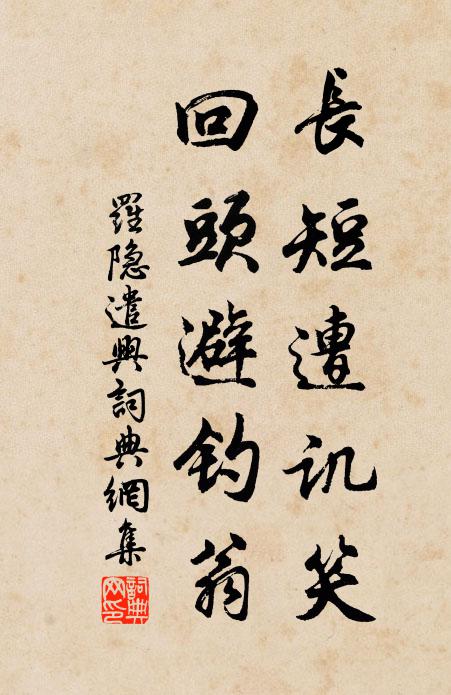 長短遭讥笑
回頭避钓翁
羅隐遣興詞典網集
詞典網印